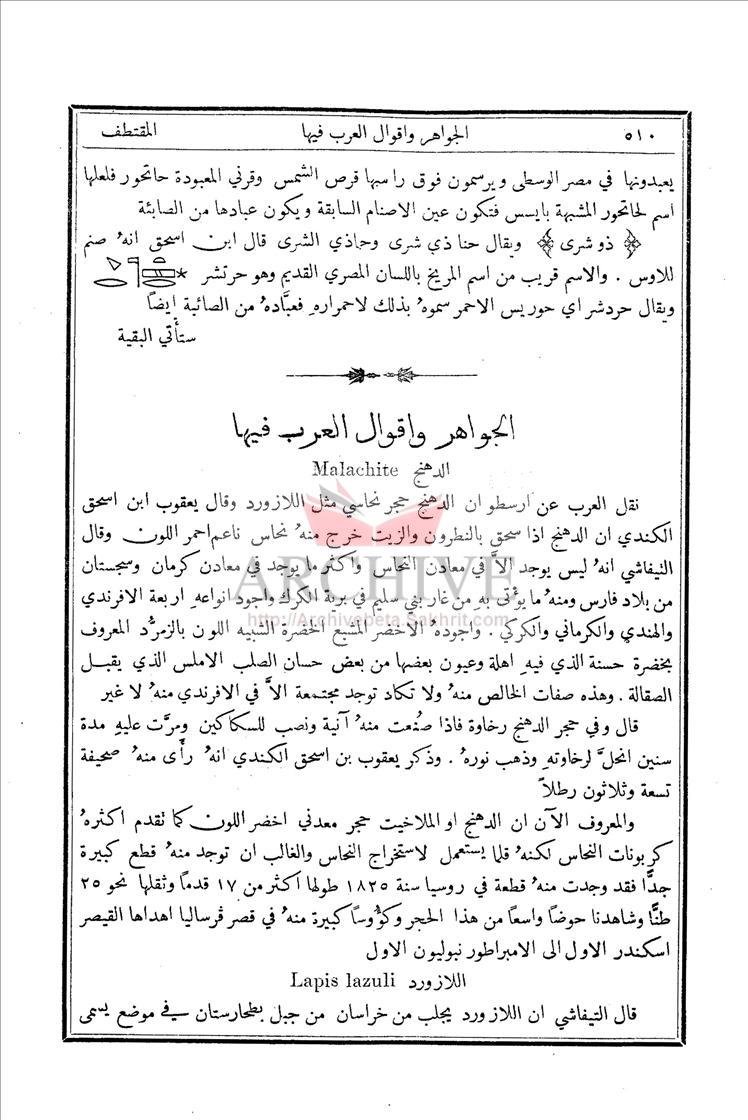 ٥١٠ الجواهر واقوال العرب فيها المقتطف
يعبدونها في مصر الوسطى ويرسمون فوق راسها قرص الشمس وقرني المعبودة حاتحور فلعلها
اسم لحاتحور المشبهة بايسس فتكون عين الاصنام السابقة ويكون عبادها من الصابئة
﴿ ذو شرى ﴾ ويقال حنا ذي شرى وحاذي الشرى قال ابن اسحق انهُ صنم
للاوس . والاسم قريب من اسم المريخ باللسان المصري القديم وهو حرتشر
ويقال حردشر اي حوريس الاحمر سموهُ بذلك لاحمرارهِ فعبَّادهُ من الصائبة ايضاً
ستأتي البقية
الجواهر واقوال العرب فيها
الدهنج Malachite
نقل العرب عن ارسطو ان الدهنج حجر نحاسي مثل اللازورد وقال يعقوب ابن اسحق
الكندي ان الدهنج اذا سحق بالنطرون والزيت خرج منهُ نحاس ناعم احمر اللون وقال
التيفاشي انهُ ليس يوجد الاَّ في معادن النحاس واكثر ما يوجد في معادن كرمان وسجستان
من بلاد فارس ومنهُ ما يؤتى بهِ من غار بني سليم في برية الكرك واجود انواعهِ اربعة الافرندي
والهندي والكرماني والكركي . واجودهُ الاخضر المشبع الخضرة الشبيه اللون بالزمرُّد المعروف
بخضرة حسنة الذي فيهِ اهلة وعيون بعضها من بعض حسان الصلب الاملس الذي يقبل
الصقالة . وهذه صفات الخالص منهُ ولا تكاد توجد مجتمعة الاَّ في الافرندي منهُ لا غير
قال وفي حجر الدهنج رخاوة فاذا صُنعت منهُ آنية ونصب للسكاكين ومرَّت عليهِ مدة
سنين انحلَّ لرخاوتهِ وذهب نورهُ . وذكر يعقوب بن اسحق الكندي انهُ رأى منهُ صحيفة
تسعة وثلاثون رطلاً
والمعروف الآن ان الدهنج او الملاخيت حجر معدني اخضر اللون كما نقدم اكثرهُ
كربونات النحاس لكنهُ قلما يستعمل لاستخراج النحاس والغالب ان توجد منهُ قطع كبيرة
جدًّا فقد وجدت منهُ قطعة في روسيا سنة ١٨٢٥ طولها اكثر من ١٧ قدماً وثقلها نحو ٢٥
طنًّا وشاهدنا حوضاً واسعاً من هذا الحجر وكؤوساً كبيرة منهُ في قصر ڤرساليا اهداها القيصر
اسكندر الاول الى الامبراطور نبوليون الاول
اللازورد Lapis lazuli
قال التيفاشي ان اللازورد يجلب من خراسان من جبل بطحارستان في موضع يسمى
ARCHIVE
http://Archivebeta.Sakhrit.com